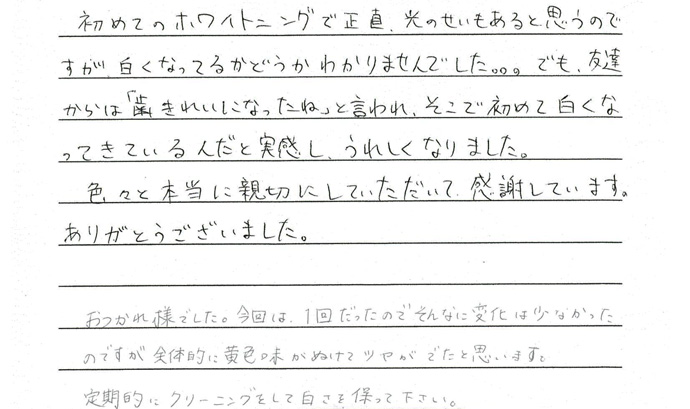 初めてのホワイトニングで正直、光のせいもあると思うので
すが、白くなってるかどうかわかりませんでした。。。でも、友達
からは「歯きれいになったね」と言われ、そこで初めて白くな
ってきているんだと実感し、うれしくなりました。
色々と本当に親切にしていただいて、感謝しています。
ありがとうございました。
おつかれ様でした。今回は、1回だったのでそんなに変化は少なかった
のですが全体的に黄色味がぬけてツヤがでたと思います。
定期的にクリーニングをして白さを保って下さい。